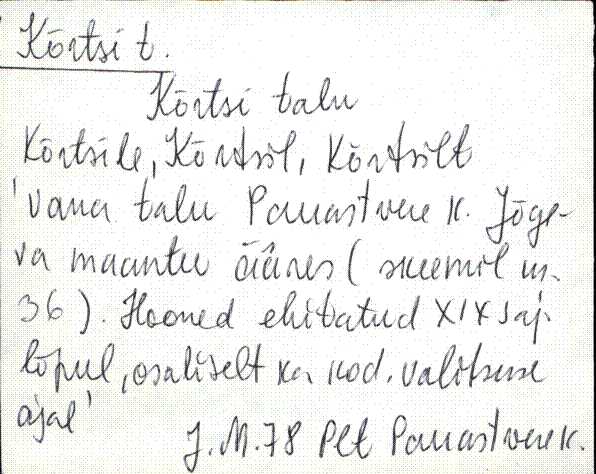 Kõrtsi t.
Kõrtsi talu
Kõrtsile, Kõrtsil, Kõrtsilt
'vana talu Pauastvere k. Jõge-
va maantee ääres (skeemil nr.
36). Hooned ehitatud XIX saj.
lõpul, osaliselt ka kod. valitsuse
ajal'
J.M. 78 Plt Pauastvere k.